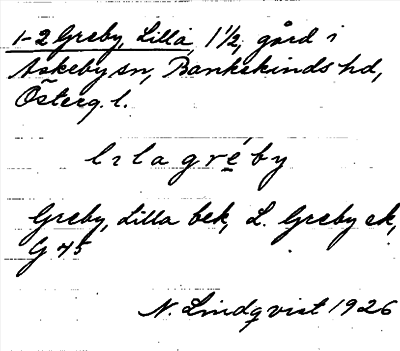 1-2 Greby, Lilla, 1 1/2, gård i
Askeby sn, Bankekinds hd,
Österg. l.
lılagréby
Greby, Lilla bek, L. Greby ek,
G 45
N. Lindqvist 1926